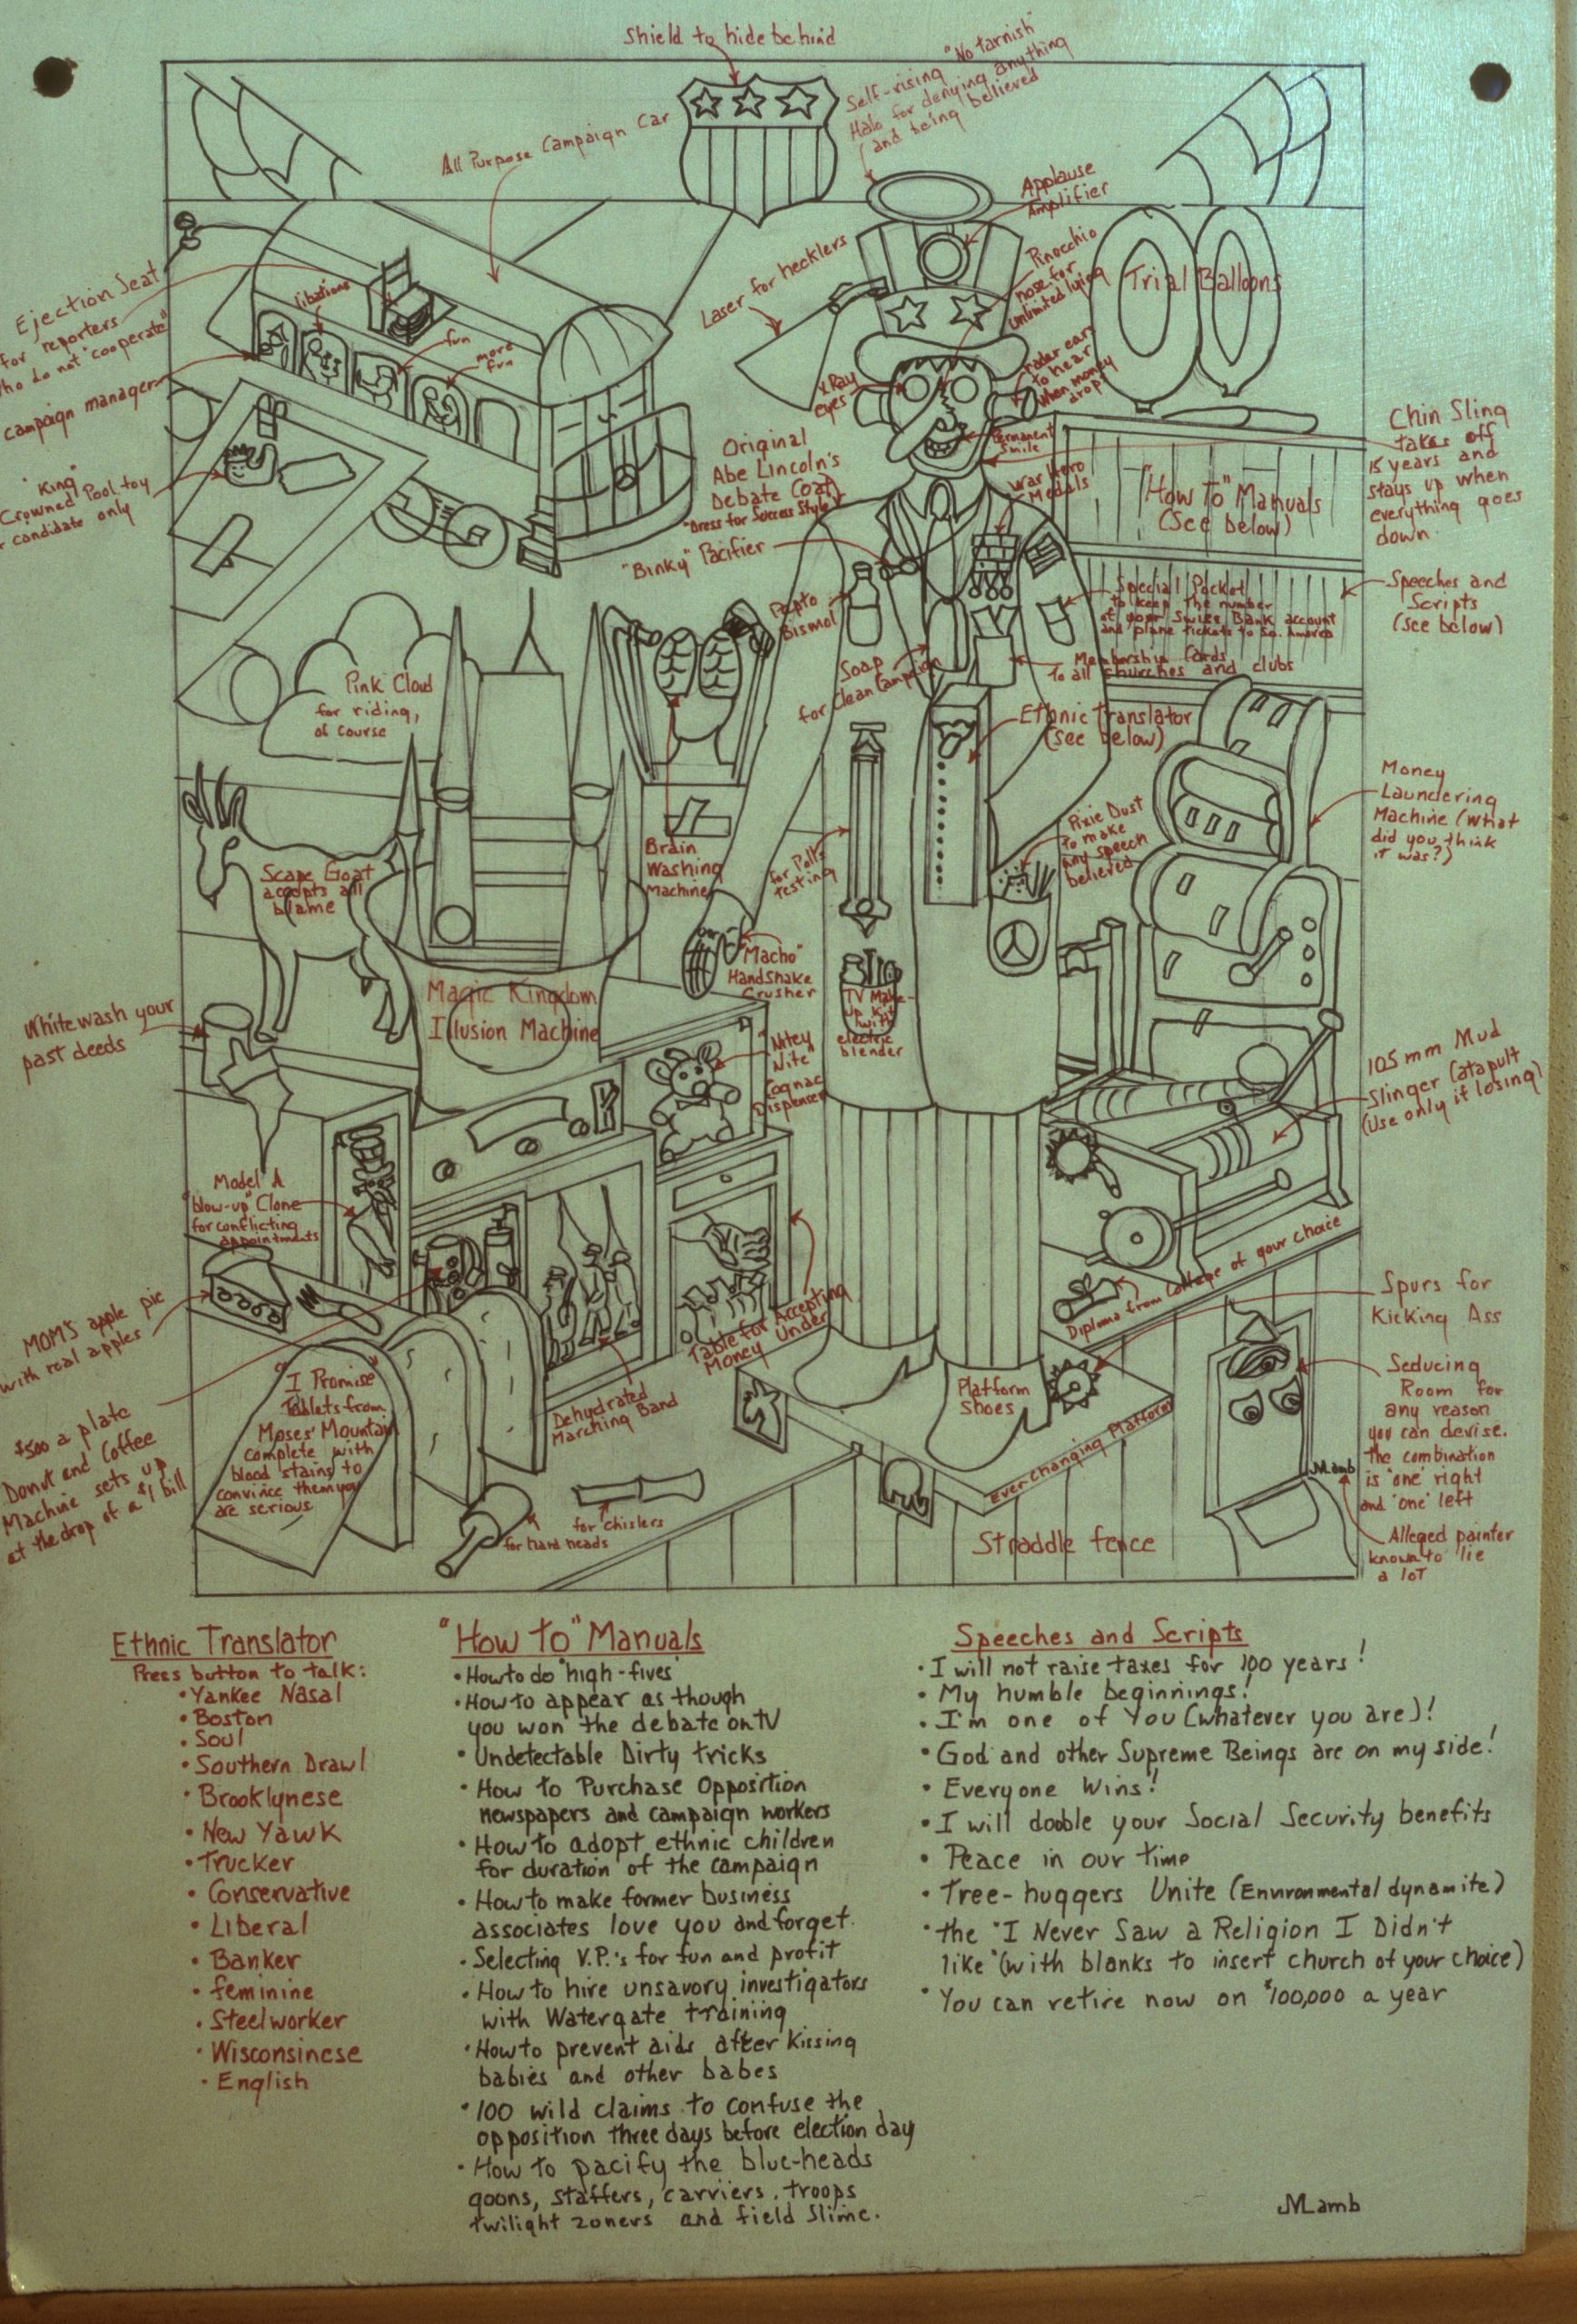 Shield to hide behind
All Purpose Campaign Car
Self-rising "No tarnish"
Halo for denying anything
and being believed
Applause
Amplifier
Laser for hecklers
Pinocchio
nose for
unlimited lying
Trial Balloons
Ejection Seat
for reporters
who do not "cooperate"
libations
fun
more
fun
campaign manager
X Ray
eyes
radar ears
to hear
when money
drops
Permanent
Smile
Chin Sling
takes off
15 years and
stays up when
everything goes
down.
"King"
Crowned Pool toy
candidate only
Original
Abe Lincoln's
Debate Coat
"Dress for Success Style"
War Hero
Medals
"How To" Manuals
(See below)
"Binky" Pacifier
Pepto
Bismol
Special Pocket
to keep the number
of your Swiss Bank account
and plane tickets to So. America
Speeches and
Scripts
(see below)
Soap
for Clean Campaign
Membership Cards
To all churches and clubs
Pink Cloud
for riding,
of course
Ethnic Translator
(see below)
Money
Laundering
Machine (what
did you think
it was?)
Brain
Washing
Machine
for Polls
testing
Pixie Dust
to make
any speech
believed
Scape Goat
accepts all
blame
"Macho"
Handshake
Crusher
Magic Kingdom
Illusion Machine
TV Make-
up Kit
with
electric
blender
White wash your
past deeds
"Nitey
Nite"
Cognac
Dispenser
105 mm Mud
Slinger Catapult
(Use only if losing)
Model A
"blow-up" Clone
for conflicting
appointments
Diploma from College of your choice
MOM'S apple pie
with real apples
Table for Accepting
Money Under
Spurs for
Kicking Ass
"I Promise"
Tablets from
Moses' Mountain
complete with
blood stains to
convince them you
are serious
Dehydrated
Marching Band
Platform
Shoes
Ever-Changing Platform
Seducing
Room for
any reason
you can devise.
The combination
is 'one' right
and 'one' left
$500 a plate
Donut and Coffee
Machine sets up
at the drop of a $1 bill
for hard heads
for chislers
Straddle fence
JMLamb
Alleged painter
known to lie
a lot
Ethnic Translator
Press button to talk:
• Yankee Nasal
• Boston
• Soul
• Southern Drawl
• Brooklynese
• New Yawk
• Trucker
• Conservative
• Liberal
• Banker
• feminine
• Steelworker
• Wisconsinese
• English
"How to" Manuals
• How to do "high-fives"
• How to appear as though
you won the debate on TV
• Undetectable Dirty tricks
• How to Purchase Opposition
newspapers and campaign workers
• How to adopt ethnic children
for duration of the campaign
• How to make former business
associates love you and forget.
• Selecting V.P.'s for fun and profit
• How to hire unsavory investigators
with Watergate training
• How to prevent aids after kissing
babies and other babes
• 100 wild claims to confuse the
opposition three days before election day
• How to pacify the blue-heads
goons, staffers, carriers, troops
twilight zoners and field slime.
Speeches and Scripts
• I will not raise taxes for 100 years!
• My humble beginnings!
• I'm one of You (whatever you are)!
• God and other Supreme Beings are on my side!
• Everyone Wins!
• I will dooble your Social Security benefits
• Peace in our time
• Tree-huggers Unite (Environmental dynamite)
• the "I Never Saw a Religion I Didn't
like" (with blanks to insert church of your choice)
• You can retire now on $100,000 a year
JMLamb